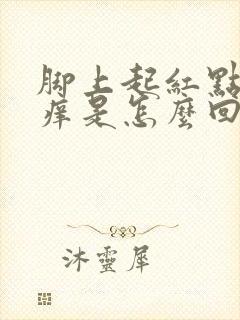 腳上起紅點
痒是怎麼回
沐靈犀